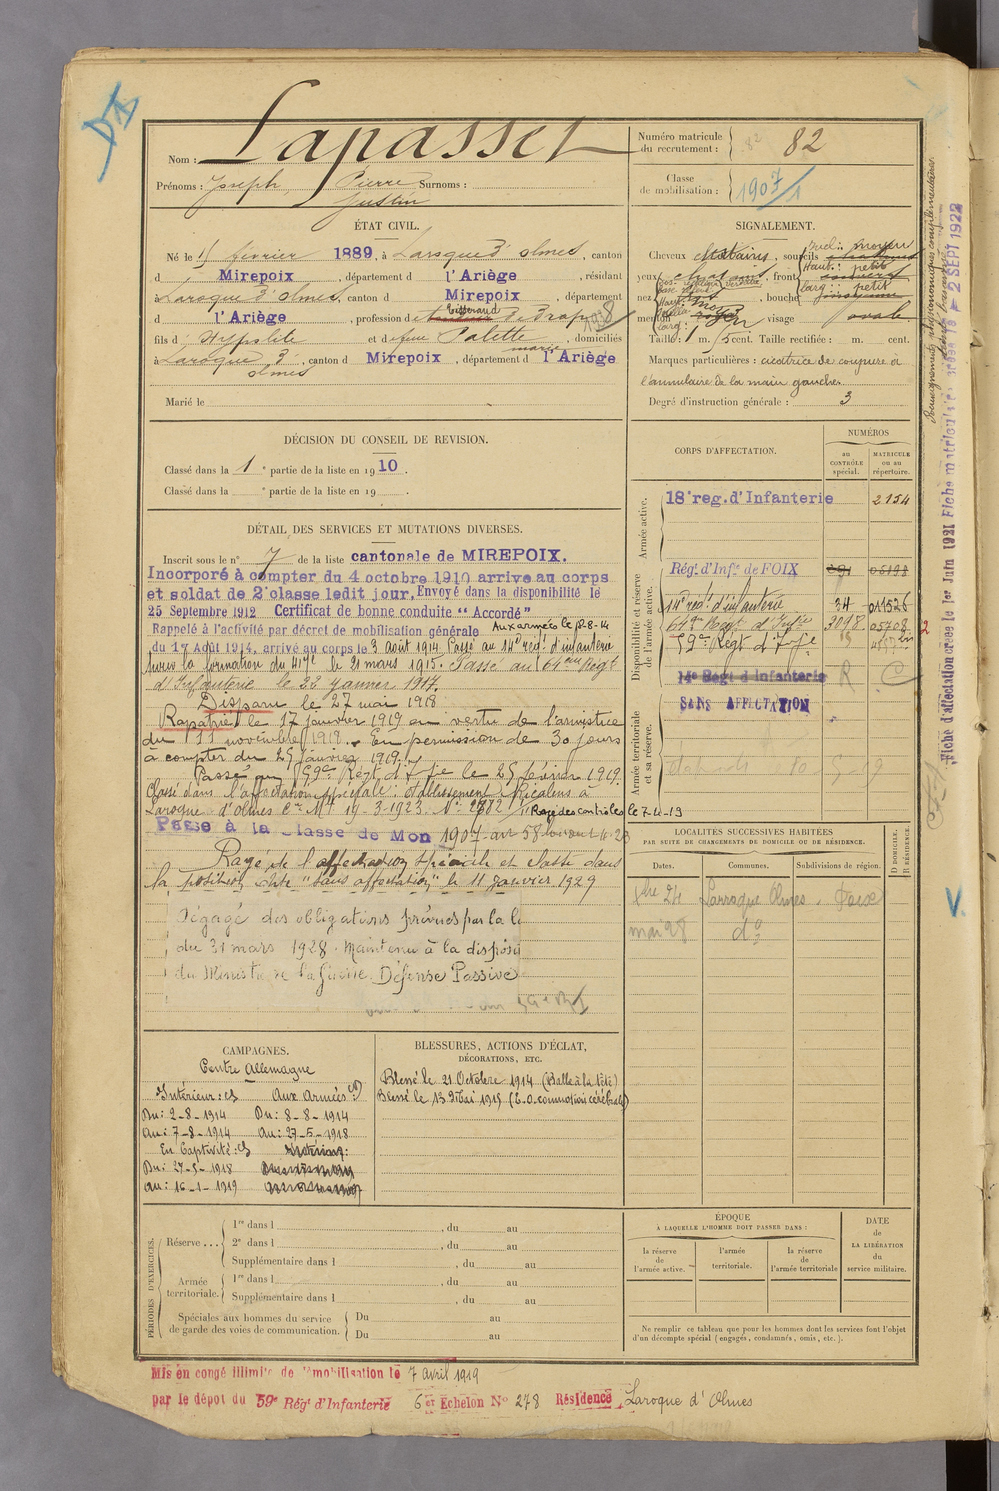 D1
Nom : Lapasset
Prénoms : Joseph Pierre Surnoms :
Justin
Numéro matricule du recrutement : 82
Classe de mobilisation : 1907/1
ÉTAT CIVIL.
Né le 15 février 1889, à Laroque d'olmes, canton
d Mirepoix, département d l'Ariège, résidant
à Laroque d'olmes, canton d Mirepoix, département
tisserand
d l'Ariège, profession de de Drap 108
fils d Hyppolite et de feue Palette marie, domiciliés
à Laroque d'olmes, canton d Mirepoix, département d l'Ariège
Marié le
SIGNALEMENT.
Cheveux chatains, sourcils
incl : moyen
yeux chatains, front
Haut : petite
larg : petit
nez , bouche moyenne
menton visage ovale
Taille : 1 m. cent. Taille rectifiée : m. cent.
Marques particulières : cicatrice de coupure à
l'annulaire de la main gauche.
Degré d'instruction générale : 3
Renseignements physionomiques complémentaires
Fiche d'affectation créée le 1er Juin 1921 Fiche matricule créée le 2 SEPT 1922
DÉCISION DU CONSEIL DE REVISION.
Classé dans la 1e partie de la liste en 1910.
Classé dans la e partie de la liste en 19 .
DÉTAIL DES SERVICES ET MUTATIONS DIVERSES.
Inscrit sous le n° 7 de la liste cantonale de MIREPOIX.
Incorporé à compter du 4 octobre 1910 arrive au corps
et soldat de 2e classe ledit jour, Envoyé dans la disponibilité le
25 Septembre 1912 Certificat de bonne conduite "Accordé"
Rappelé à l'activité par décret de mobilisation générale Aux armées le 8-8-14
du 1er Août 1914, arrivé au corps le 3 août 1914 Passé au 14e regt d'infanterie
suivre la formation du 417e le 21 mars 1915. Passé au 64eme Régt
d'Infanterie le 22 janvier 1917.
Disparu le 27 mai 1918
Rapatrié le 17 janvier 1919 en vertu de l'armistice
du 11 novembre 1918. En permission de 30 jours
à compter du 25 janvier 1919.
Passé au 59e Régt d'Ifie le 25 février 1919.
Classé dans l'affectation spéciale : établissement Ricalens à
Laroque d'Olmes Cre Mle 19-3-1923. N° 2782/ Rayé des contrôles le 7-4-19
Passé à la classe de Mon 1907 art 58 loi du 1-4-23
Rayé de l'affectation spéciale et classé dans
la position dite "sans affectation" le 11 janvier 1929
Dégagé des obligations prévues par la l
du 31 mars 1928. Maintenu à la dispos
du Ministre de la Guerre. Défense Passive
CORPS D'AFFECTATION.
NUMÉROS
au CONTRÔLE spécial.
MATRICULE ou au répertoire.
Armée active.
18e reg. d'Infanterie 2154
Disponibilité et réserve de l'armée active.
Régt d'Infie de FOIX 291 06198
14e regt d'infanterie 34 011526
64e Régt d'Infie 3098 05708
59e Régt d'Ifie
14e Regt d'Infanterie R C
SANS AFFECTATION
Armée territoriale et sa réserve.
LOCALITÉS SUCCESSIVES HABITÉES
PAR SUITE DE CHANGEMENTS DE DOMICILE OU DE RÉSIDENCE.
Dates. Communes. Subdivisions de région.
D DOMICILE. R RÉSIDENCE.
Xbre 24 Larroque Olmes. Foix
mai 28 d°
V.
CAMPAGNES.
Contre Allemagne
Intérieur : CS Aux Armées : CD
Du : 2-8-1914 Du : 8-8-1914
Au : 7-8-1914 Au : 27-5-1918
En Captivité : CS
Du : 27-5-1918
Au : 16-1-1919
BLESSURES, ACTIONS D'ÉCLAT,
DÉCORATIONS, ETC.
Blessé le 21 Octobre 1914 (Balle à la tête)
Blessé le 13 Mai 1915 (E.O. commotion cérébrale)
PÉRIODES D'EXERCICES.
Réserve ...
1re dans l , du au
2e dans l , du au
Supplémentaire dans l , du au
Armée territoriale.
1re dans l , du au
Supplémentaire dans l , du au
Spéciales aux hommes du service de garde des voies de communication.
Du au
Du au
ÉPOQUE
À LAQUELLE L'HOMME DOIT PASSER DANS :
la réserve de l'armée active.
l'armée territoriale.
la réserve de l'armée territoriale
DATE de LA LIBÉRATION du service militaire.
Ne remplir ce tableau que pour les hommes dont les services font l'objet
d'un décompte spécial (engagés, condamnés, omis, etc.).
Mis en congé illimité de démobilisation le 7 avril 1919
par le dépot du 59e Régt d'Infanterie 6 et Echelon N° 278 Résidence Laroque d'Olmes